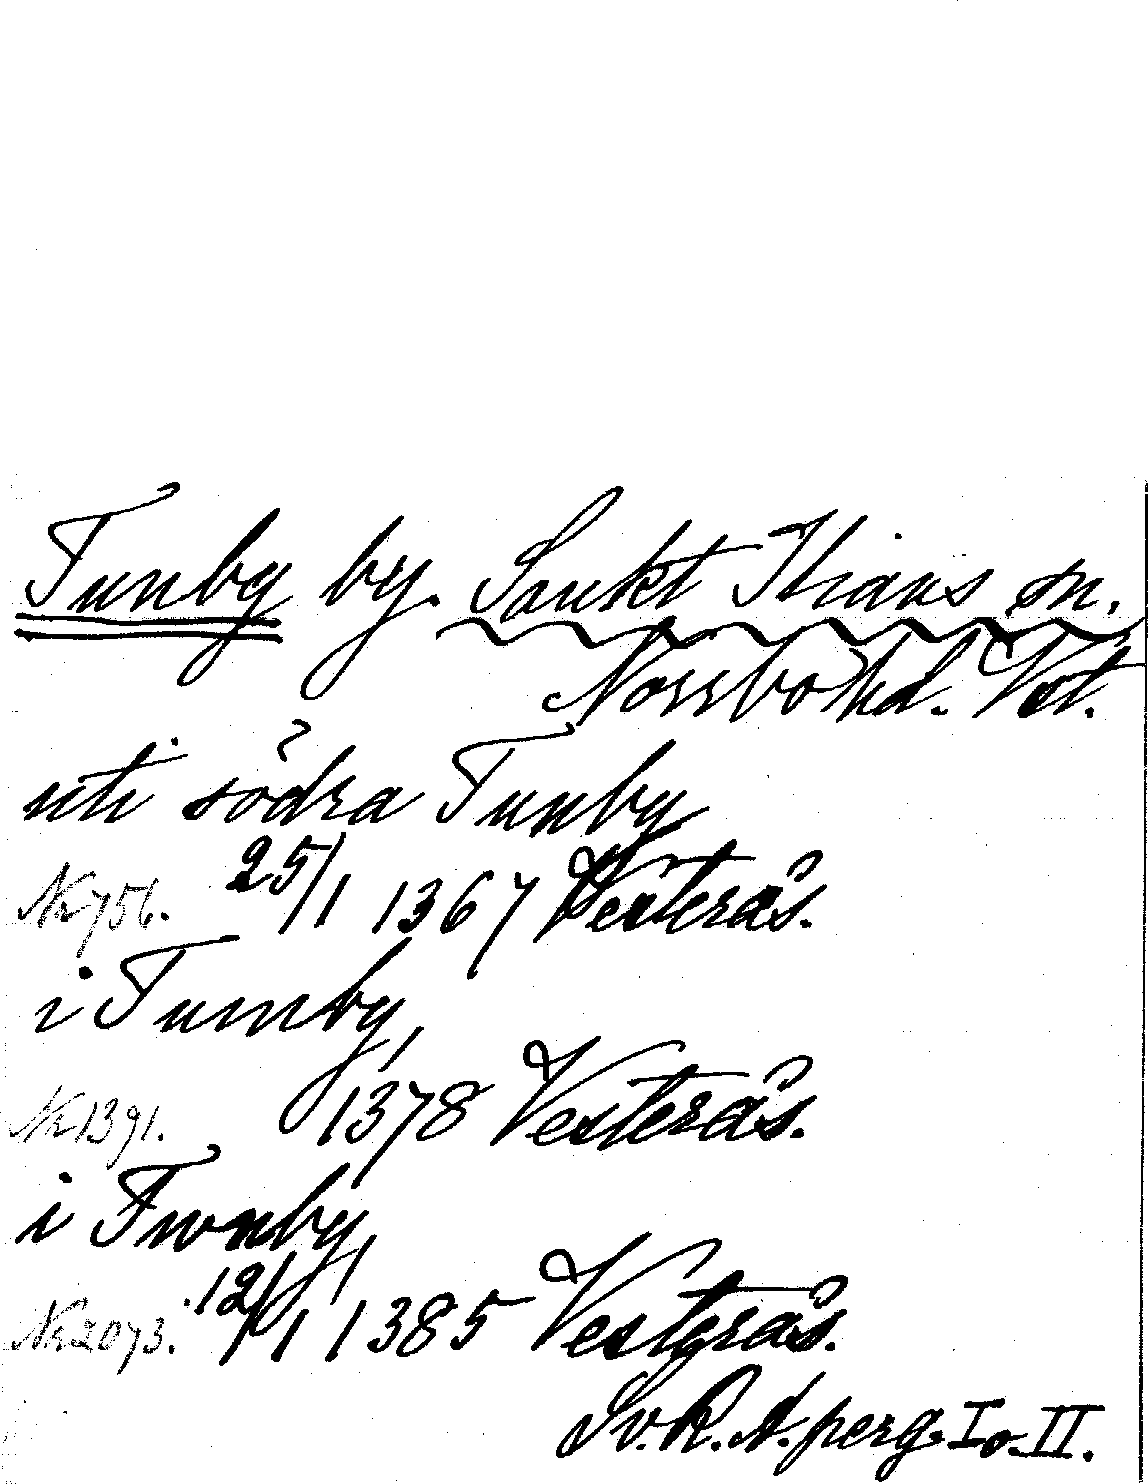 Tunby by. Sankt Ilians sn.
Norrbo hd. Vst.
uti södra Tunby
Nr 756. 25/1 1367 Vesterås.
i Tumby,
Nr 1391. 1378 Vesterås.
i Twnby,
Nr 2073. 12/1 1385 Vesterås.
Sv. R. A. perg. I o. II.